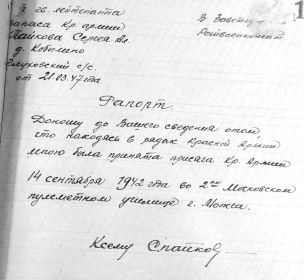 лейтенанта
запаса Кр. армии
д. Кобылино
с/с.
от 21.03.47 года
Райвоенкомат
Рапорт.
Доношу до Вашего сведения о том,
что находясь в рядах Красной Армии
мною была принята присяга Кр. Армии
14 сентября 1942 года во 2ом Московском
пулеметном училище г. Можга.
К сему
1